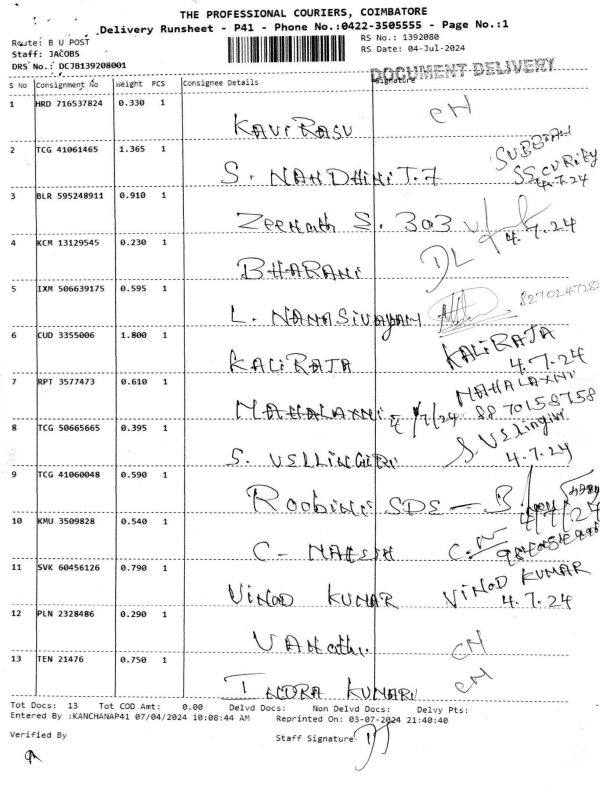 THE PROFESSIONAL COURIERS, COIMBATORE
Delivery Runsheet - P41 - Phone No.:0422-3505555 - Page No.:1
Route: B U POST
RS No.: 1392080
Staff: JACOBS
RS Date: 04-Jul-2024
DRS No.: DCJB139208001
DOCUMENT DELIVERY
S No Consignment No Weight PCS Consignee Details Signature
1 HRD 716537824 0.330 1
KAVIRASU CH
2 TCG 41061465 1.365 1
SUBBIAH
S. NANDHINI T.7 4.7.24
3 BLR 595248911 0.910 1
Zeenath S. 303 4.7.24
4 KCM 13129545 0.230 1
BHARANI DL
5 IXM 506639175 0.595 1
L. NAMASIVAYAM
6 CUD 3355006 1.800 1
KALIRAJA KALIRAJA
4.7.24
7 RPT 3577473 0.610 1
MAHALAXMI
MAHALAXMI 4/7/24 8870158758
8 TCG 50665665 0.395 1
S. VELLINGIRI 4.7.24
9 TCG 41060048 0.590 1
Roobini SDS - 4/7/24
10 KMU 3509828 0.540 1
C-
11 SVK 60456126 0.790 1
VINOD KUMAR VINOD KUMAR
4.7.24
12 PLN 2328486 0.290 1
VANathi CH
13 TEN 21476 0.750 1
INDRA KUMARI CH
Tot Docs: 13 Tot COD Amt: 0.00 Delvd Docs: Non Delvd Docs: Delvy Pts:
Entered By :KANCHANAP41 07/04/2024 10:08:44 AM Reprinted On: 03-07-2024 21:40:40
Verified By
Staff Signature